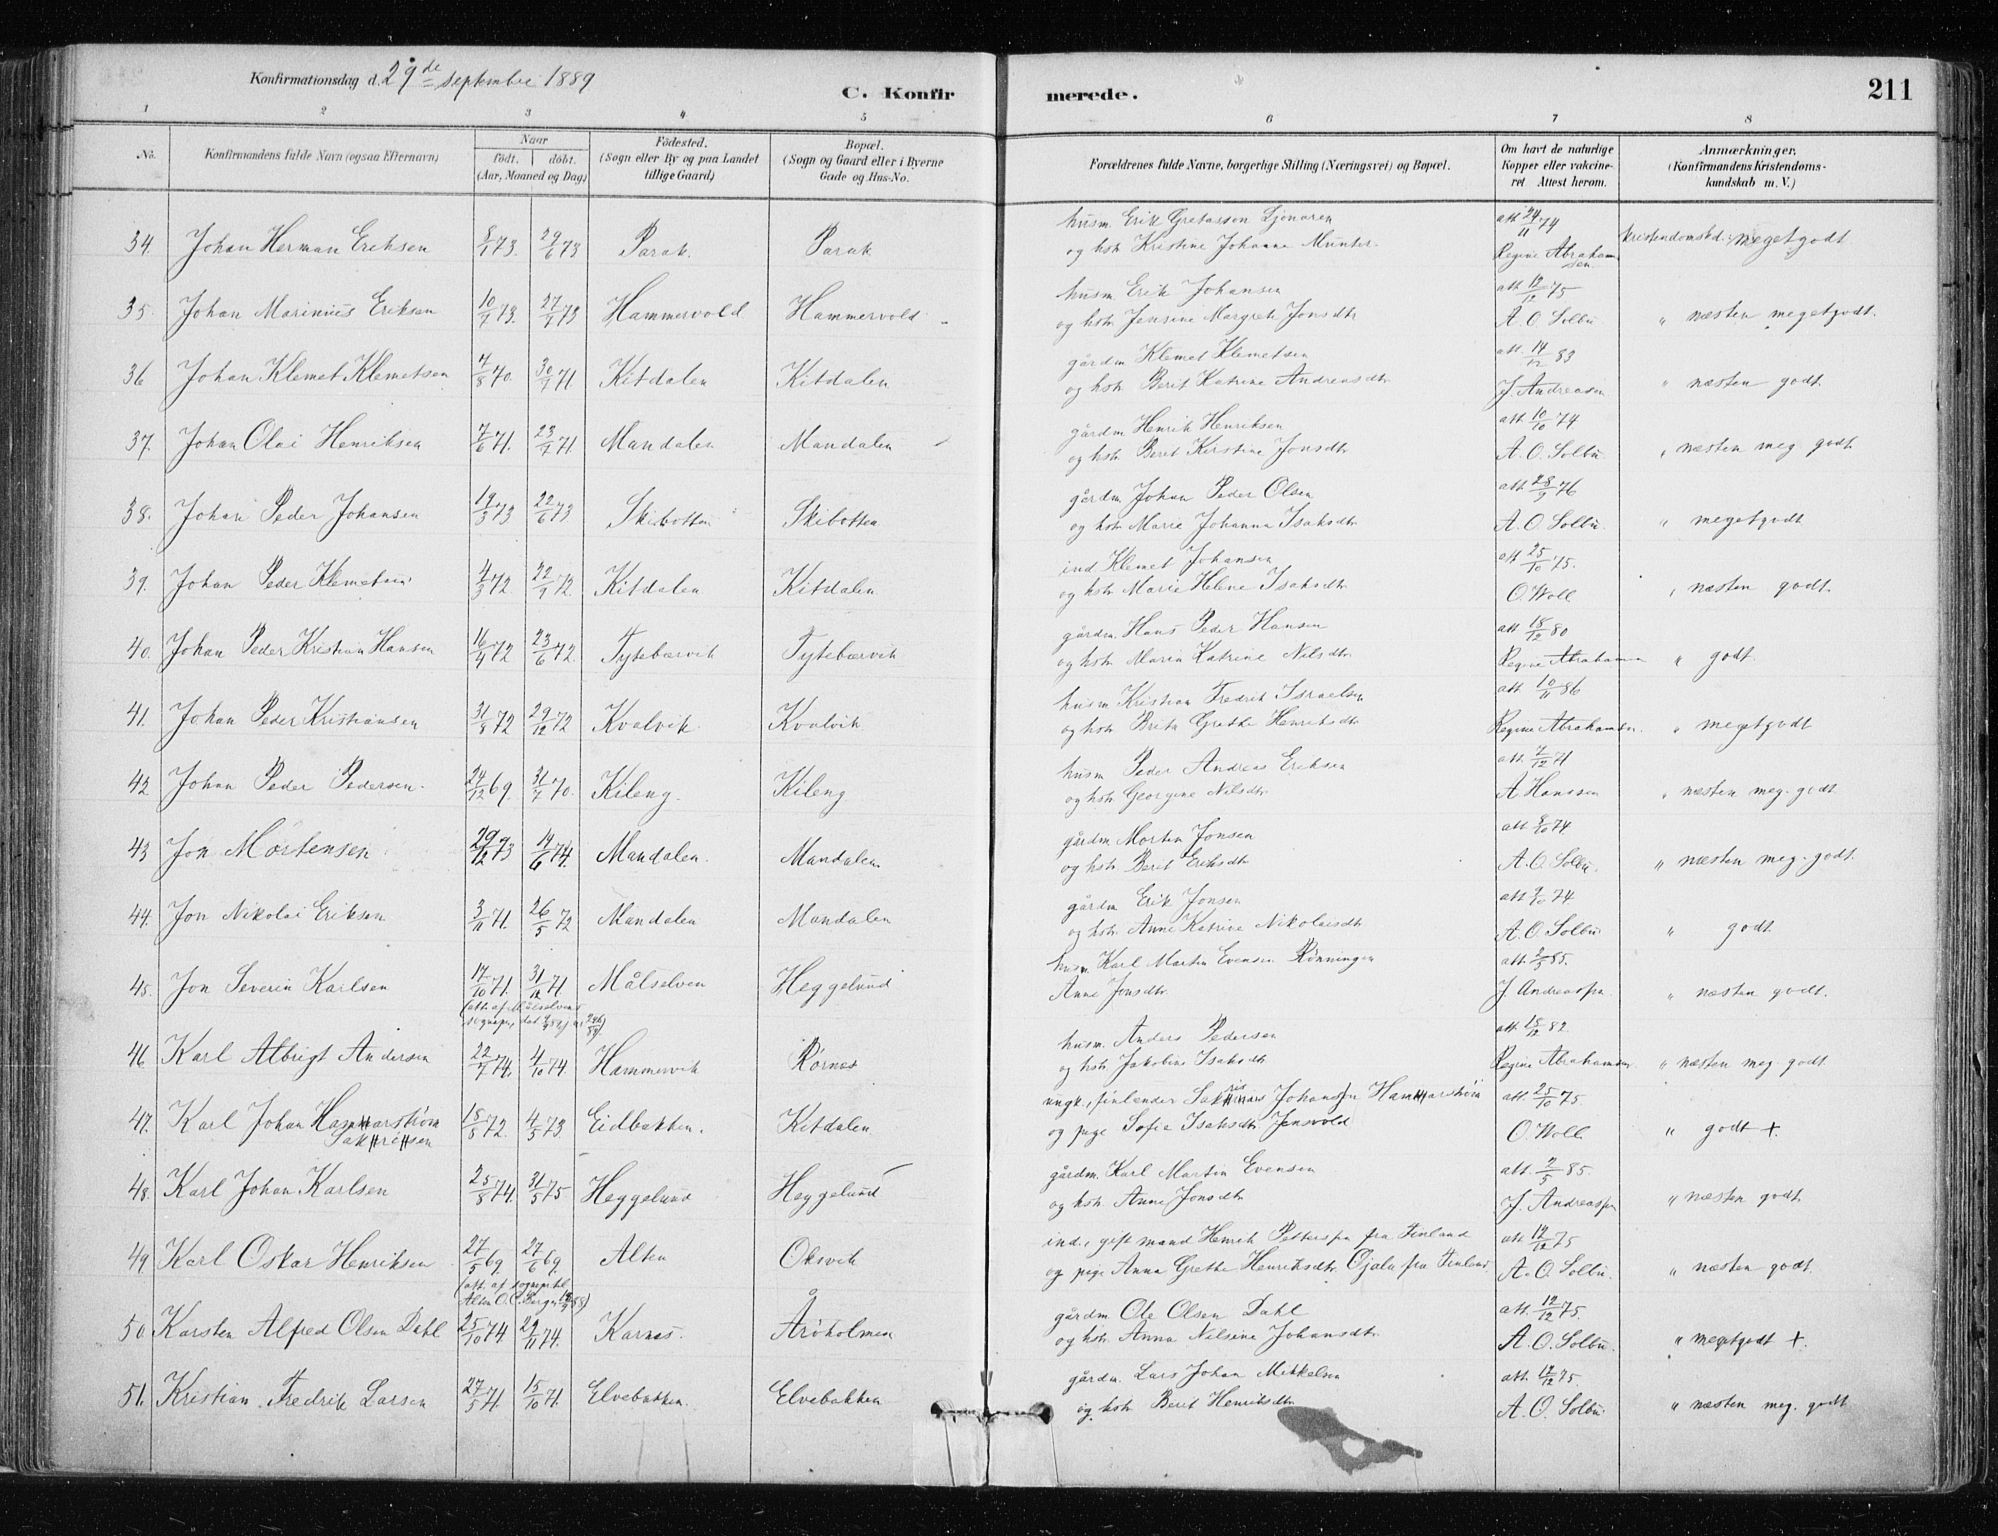 Konfirmationsdag d. 29de september 1889
C. Konfirmerede.
211
1 2 3 4 5 6 7 8
No. Konfirmandens fulde Navn (ogsaa Efternavn) Naar født. døbt. (Aar, Maaned og Dag) Födested. (Sogn eller By og paa Landet tillige Gaard) Bopæl. (Sogn og Gaard eller i Byerne Gade og Hus-No. Forældrenes fulde Navne, borgerlige Stilling (Næringsvei) og Bopæl. Om havt de naturlige Kopper eller vakcineret Attest herom. Anmærkninger. (Konfirmandens Kristendomskundskab m. V.)
34. Johan Herman Eriksen 8/1 73. 29/6 73 Parak. Parak husm Erik Gretasson Ljonaren att 24/11 74 kristendomskd. megetgodt
og hstr Kristine Johanne Munter. Regine Abrahamsen
35. Johan Marinius Eriksen 10/7 73. 27/7 73 Hammervold Hammervold husm Erik Johansen att 12/12 75
og hstr Jensine Margreth Jonsdtr A. O. Solbu. " næsten megetgodt.
36 Johan Klemet Klemetsen 4/8 70. 30/7 71 Kitdalen Kitdalen gårdm Klemet Klemetsen att 14/12 83
og hstr Berit Katrine Andreasdtr J. Andreasen " næsten godt.
37. Johan Olai Henriksen 7/6 71. 23/7 71 Mandalen Mandalen gårdm Henrik Henriksen att 10/10 74
og hstr Berit Kirstine Jonsdtr A. O. Solbu " næsten meg godt
38. Johan Peder Johansen 19/3 73 22/6 73 Skibotten Skibotten gårdm Johan Peder Olsen att. 28/9 76
og hstr Marie Johanna Isaksdtr A. O. Solbu. " megetgodt
39. Johan Peder Klemetsen 4/3 72 22/9 72. Kitdalen Kitdalen ind Klemet Johansen att 25/10 75.
og hstr Marie Helene Isaksdtr O. Woll " næsten godt.
40. Johan Peder Kristian Hansen 16/4 72 23/6 72. Tytebærvik Tytebærvik gårdm. Hans Peder Hansen att 18/12 80
og hstr Maria Katrine Nilsdtr Regine Abrahamsen " godt.
41. Johan Peder Kristiansen 31/8 72 29/12 72 Kvalvik Kvalvik husm Kristian Fredrik Israelsen att 10/11 86
og hstr Brita Grethe Henriksdtr Regine Abrahamsen. " megetgodt
42 Johan Peder Pedersen. 24/12 69. 31/7 70. Kileng. Kileng husm Peder Andreas Eriksen att 7/12 71
og hstr Georgine Nilsdtr A Hanssen " næsten meg. godt.
43 Jon Mortensen 29/12 73 14/6 74. Mandalen. Mandalen gårdm Morten Jonsen att 8/10 74.
og hstr Berit Eriksdtr A. O. Solbu. " næsten meg. godt.
44. Jon Nikolai Eriksen 3/11 71. 26/5 72 Mandalen Mandalen gårdm Erik Jonsen att 9/10 74
og hstr Anne Katrine Nikolaisdtr A. O. Solbu " godt.
45. Jon Severin Karlsen 17/10 71. 31/12 71 Målselven Heggelund husm. Karl Martin Evensen Rönningen att 2/5 85.
Anne Jonsdtr. J. Andreassen " næsten godt.
(att. af Målselvens
46 Karl Albrigt Andersen 22/7 74. 4/10 74 Hammervik Rørnes husm. Anders Pedersen att 18/12 82.
og hstr Jakobine Isaksdtr Regine Abrahamsen " næsten meg godt.
47. Karl Johan Hammarstrøm 18/5 72. 4/5 73 Eidbakken. Kitdalen ungk., finlænder Johansen Hammarstrøm att 25/10 75.
og pige Sofia Isaksdtr Jensvold O. Woll " godt +.
48. Karl Johan Karlsen 25/8 74. 31/5 75 Heggelund Heggelund gårdm. Karl Martin Evensen att. 2/5 85.
og hstr Anne Jonsdtr J. Andreassen " næsten godt.
49 Karl Oskar Henriksen 27/5 69 27/6 69. Alten Oksvik ind., gift mand Henrik Petterssen fra Finland att 12/12 75
og pige Anna Grethe Henriksdtr. Ojala fra Finland. A. O. Solbu " næsten godt.
50 Karsten Alfred Olsen Dahl 25/10 74 29/11 74. Karnes. Årøholmen gårdm Ole Olsen Dahl att. 12/12 75.
og hstr. Anna Nilsine Johansdtr. A. O. Solbu. " megetgodt +.
51. Kristian Fredrik Larsen 27/5 71. 15/10 71. Elvebakken. Elvebakken gårdm. Lars Johan Mikkelsen att. 12/12 75
og hstr Berit Henriksdtr A. O. Solbu. " næsten meg. godt